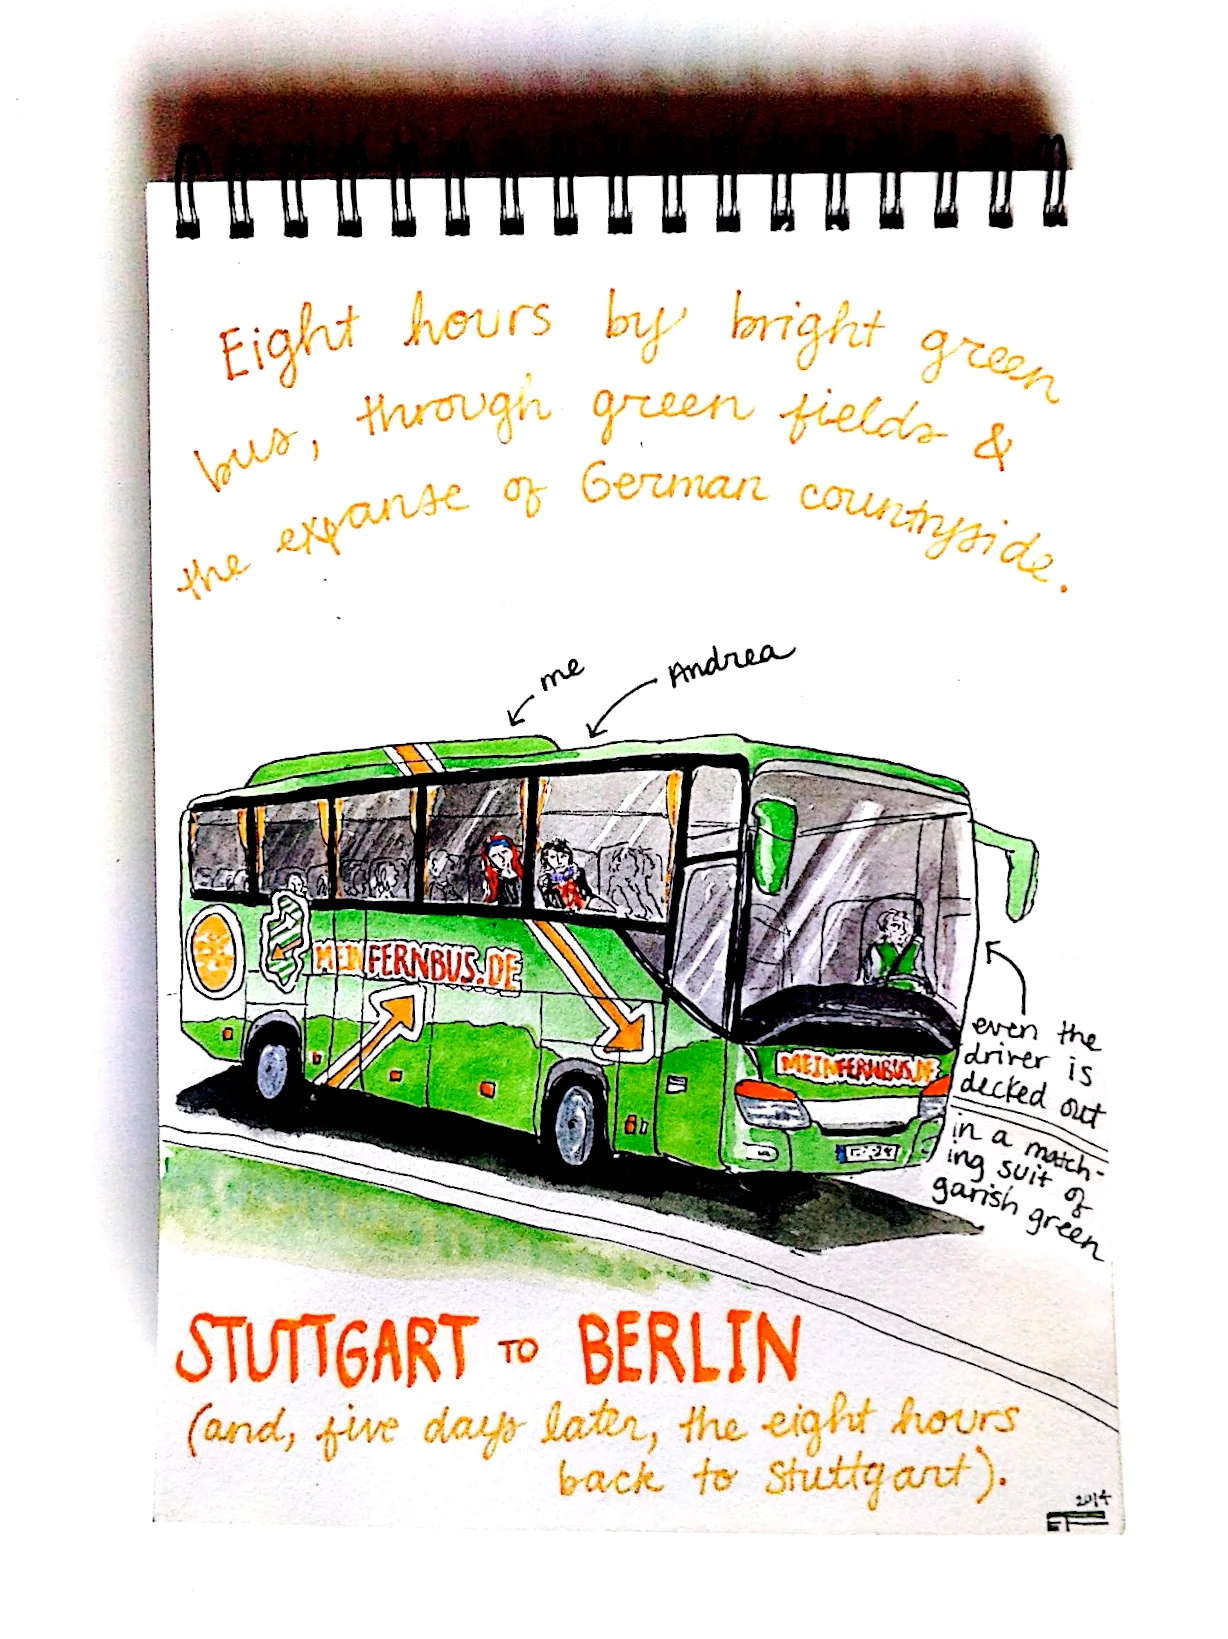 Eight hours by bright green
bus, through green fields &
the expanse of German countryside.
me
Andrea
MEINFERNBUS.DE
MEINFERNBUS.DE
even the
driver is
decked out
in a match-
ing suit of
garish green
STUTTGART TO BERLIN
(and, five days later, the eight hours
back to Stuttgart).
2014